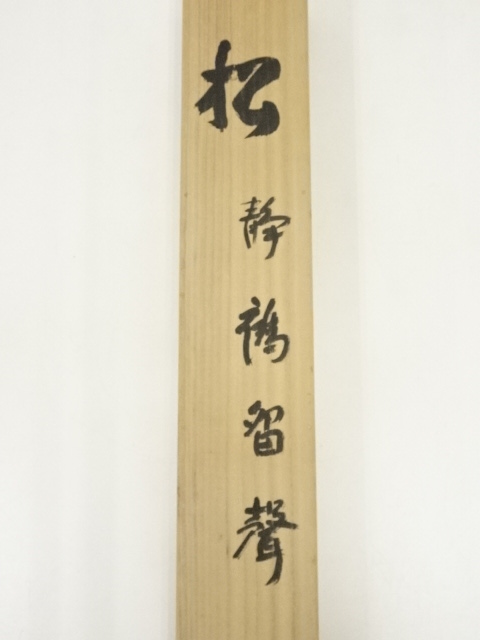 松
静鶴留聲